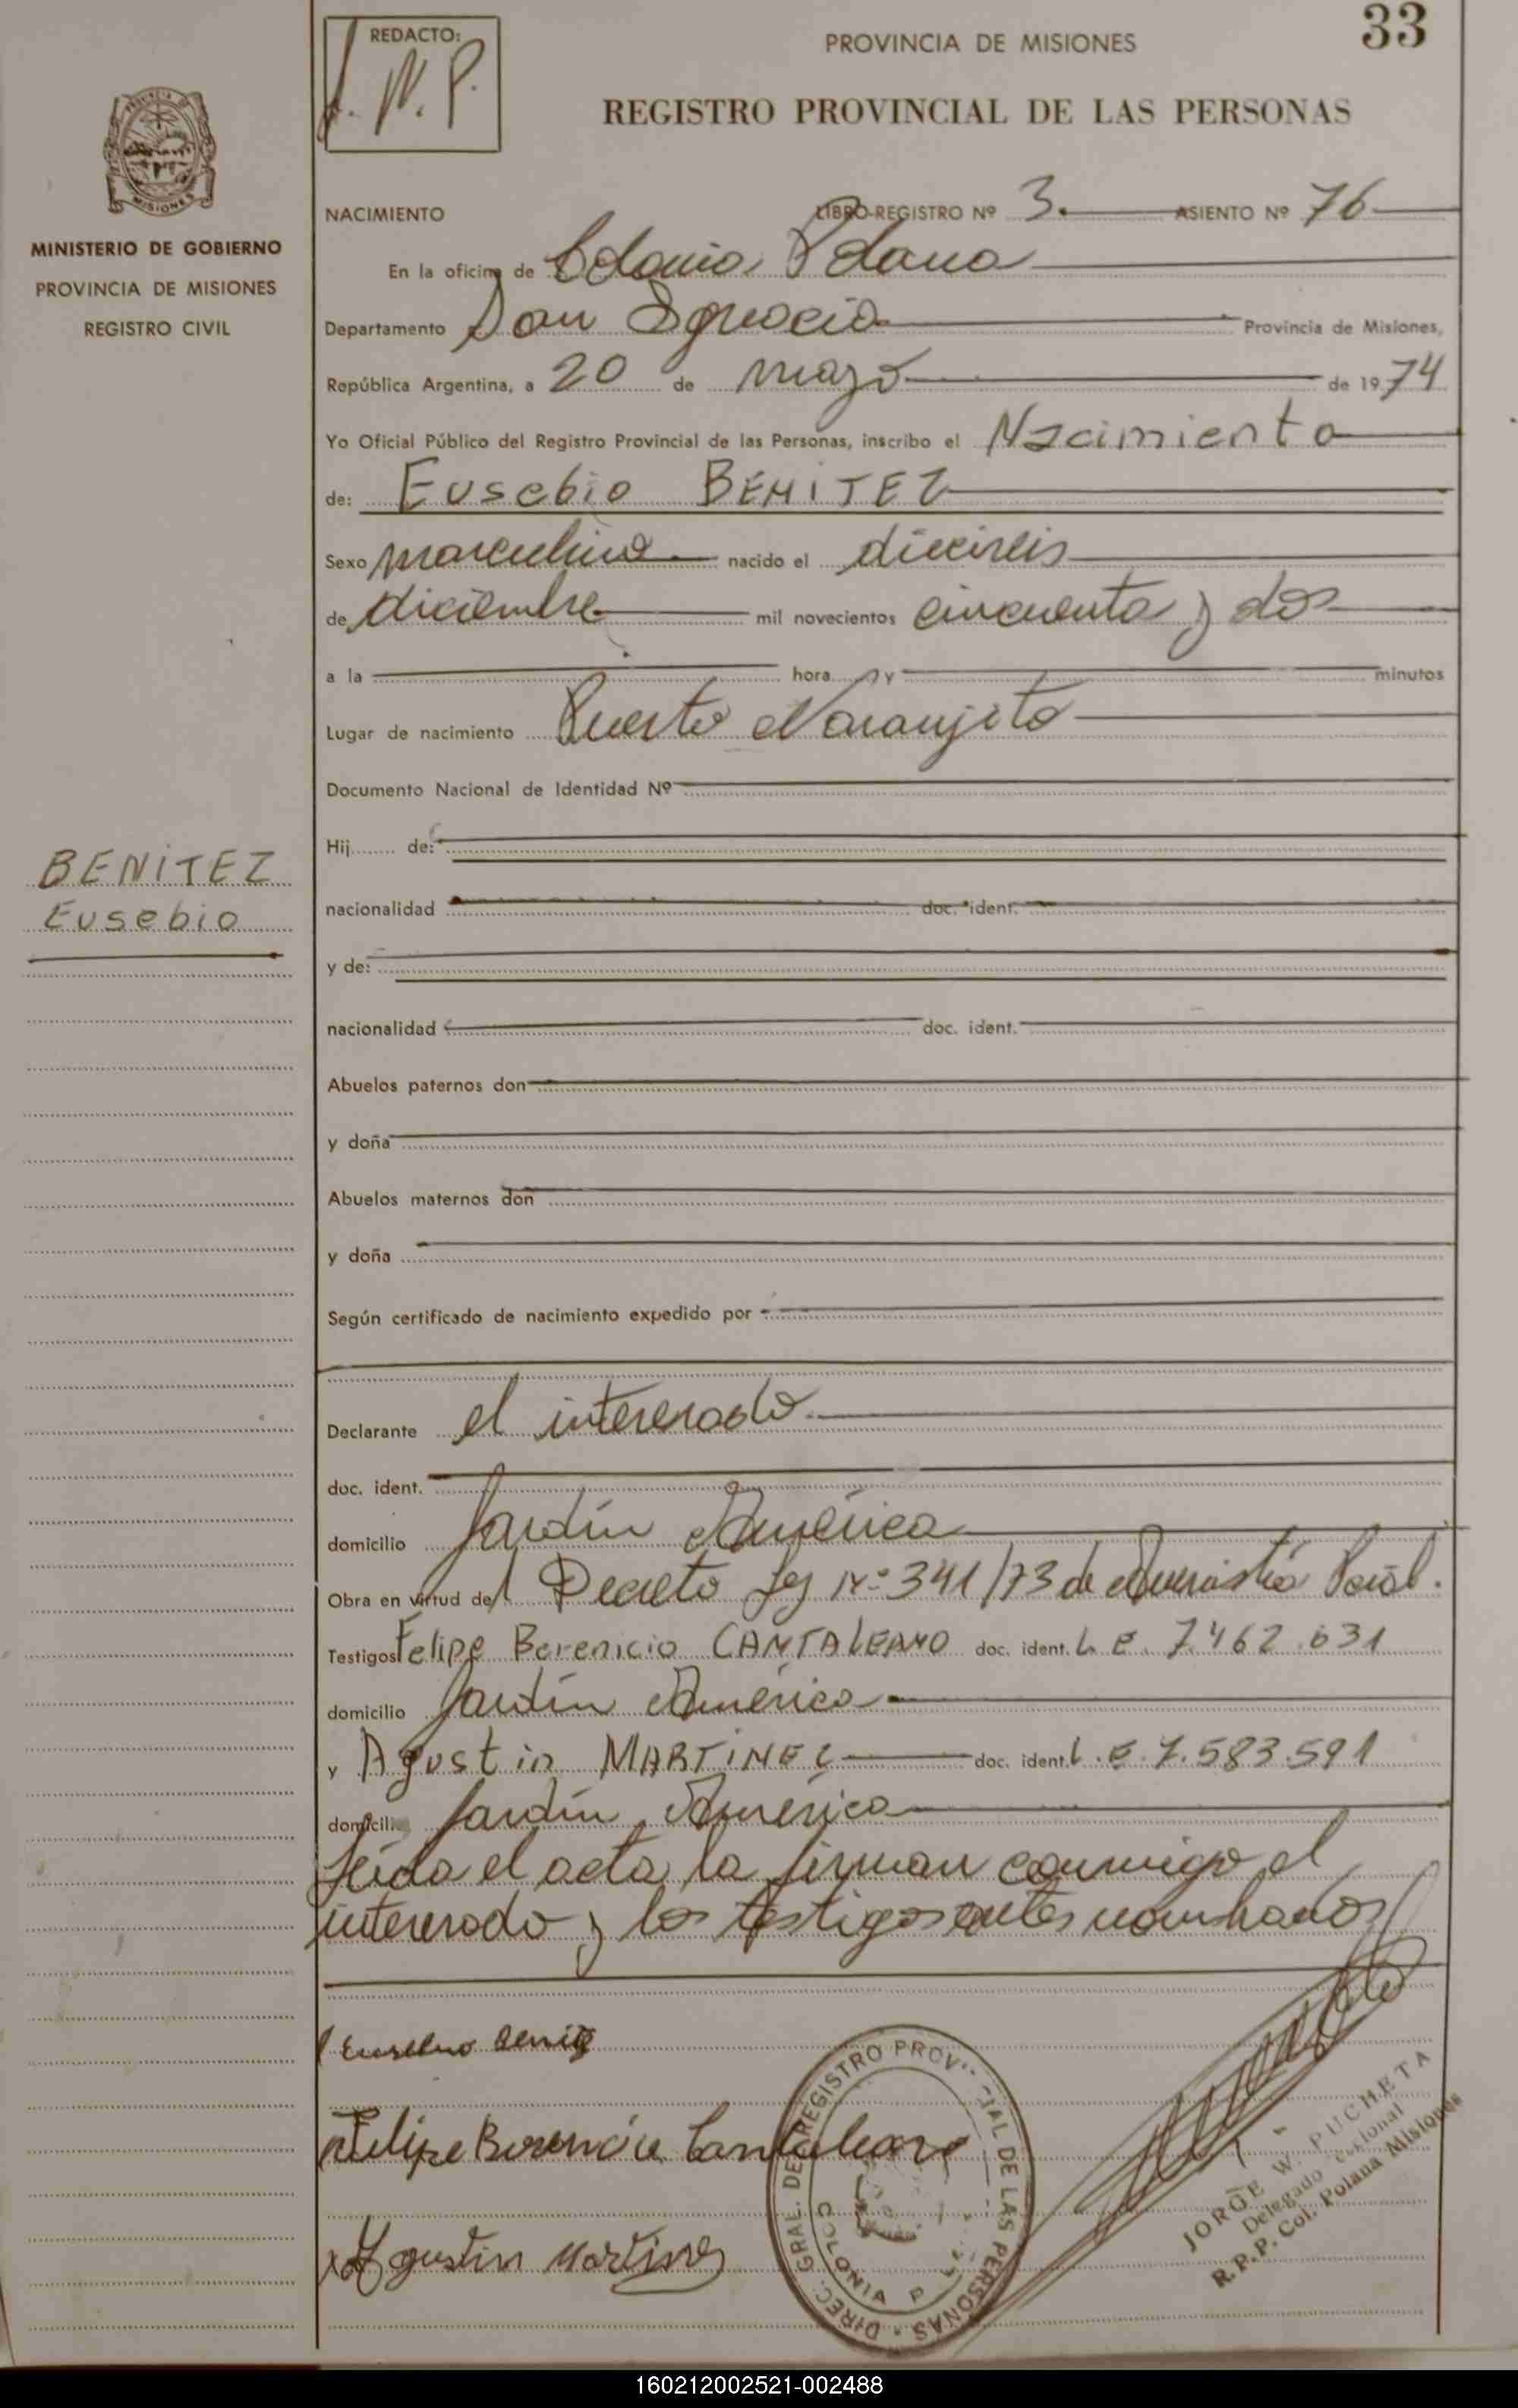 33
REDACTO:
J. W. P.
PROVINCIA DE MISIONES
REGISTRO PROVINCIAL DE LAS PERSONAS
MISIONES
MINISTERIO DE GOBIERNO
PROVINCIA DE MISIONES
REGISTRO CIVIL
BENITEZ
Eusebio
NACIMIENTO LIBRO-REGISTRO Nº 3. ASIENTO Nº 76
En la oficina de Colonia Polana
Departamento San Ignacio Provincia de Misiones,
República Argentina, a 20 de mayo de 1974
Yo Oficial Público del Registro Provincial de las Personas, inscribo el Nacimiento
de: Eusebio BENITEZ
Sexo masculino nacido el dieciseis
de diciembre mil novecientos cincuenta y dos
a la hora y minutos
Lugar de nacimiento Puerto Naranjito
Documento Nacional de Identidad Nº
Hij de:
nacionalidad doc. ident.
y de:
nacionalidad doc. ident.
Abuelos paternos don
y doña
Abuelos maternos don
y doña
Según certificado de nacimiento expedido por
Declarante el interesado
doc. ident.
domicilio Jardín América
Obra en virtud del Decreto Ley Nº 341/73 de Amnistía
Testigos Felipe Berenicio CANTALEANO doc. ident. L. E. 7.462.631
domicilio Jardín América
y Agustin MARTINEZ doc. ident. L. E. 7.583.591
domicilio Jardín América
Leída el acta la firman conmigo el
interesado y los testigos antes nombrados
Felipe Berencio Cantaleano
Agustin Martinez
DIREC. GRAL. DEL REGISTRO PROVINCIAL DE LAS PERSONAS
COLONIA
JORGE W. PUCHETA
Delegado
R. P. P. Col. Polana Misiones
160212002521-002488